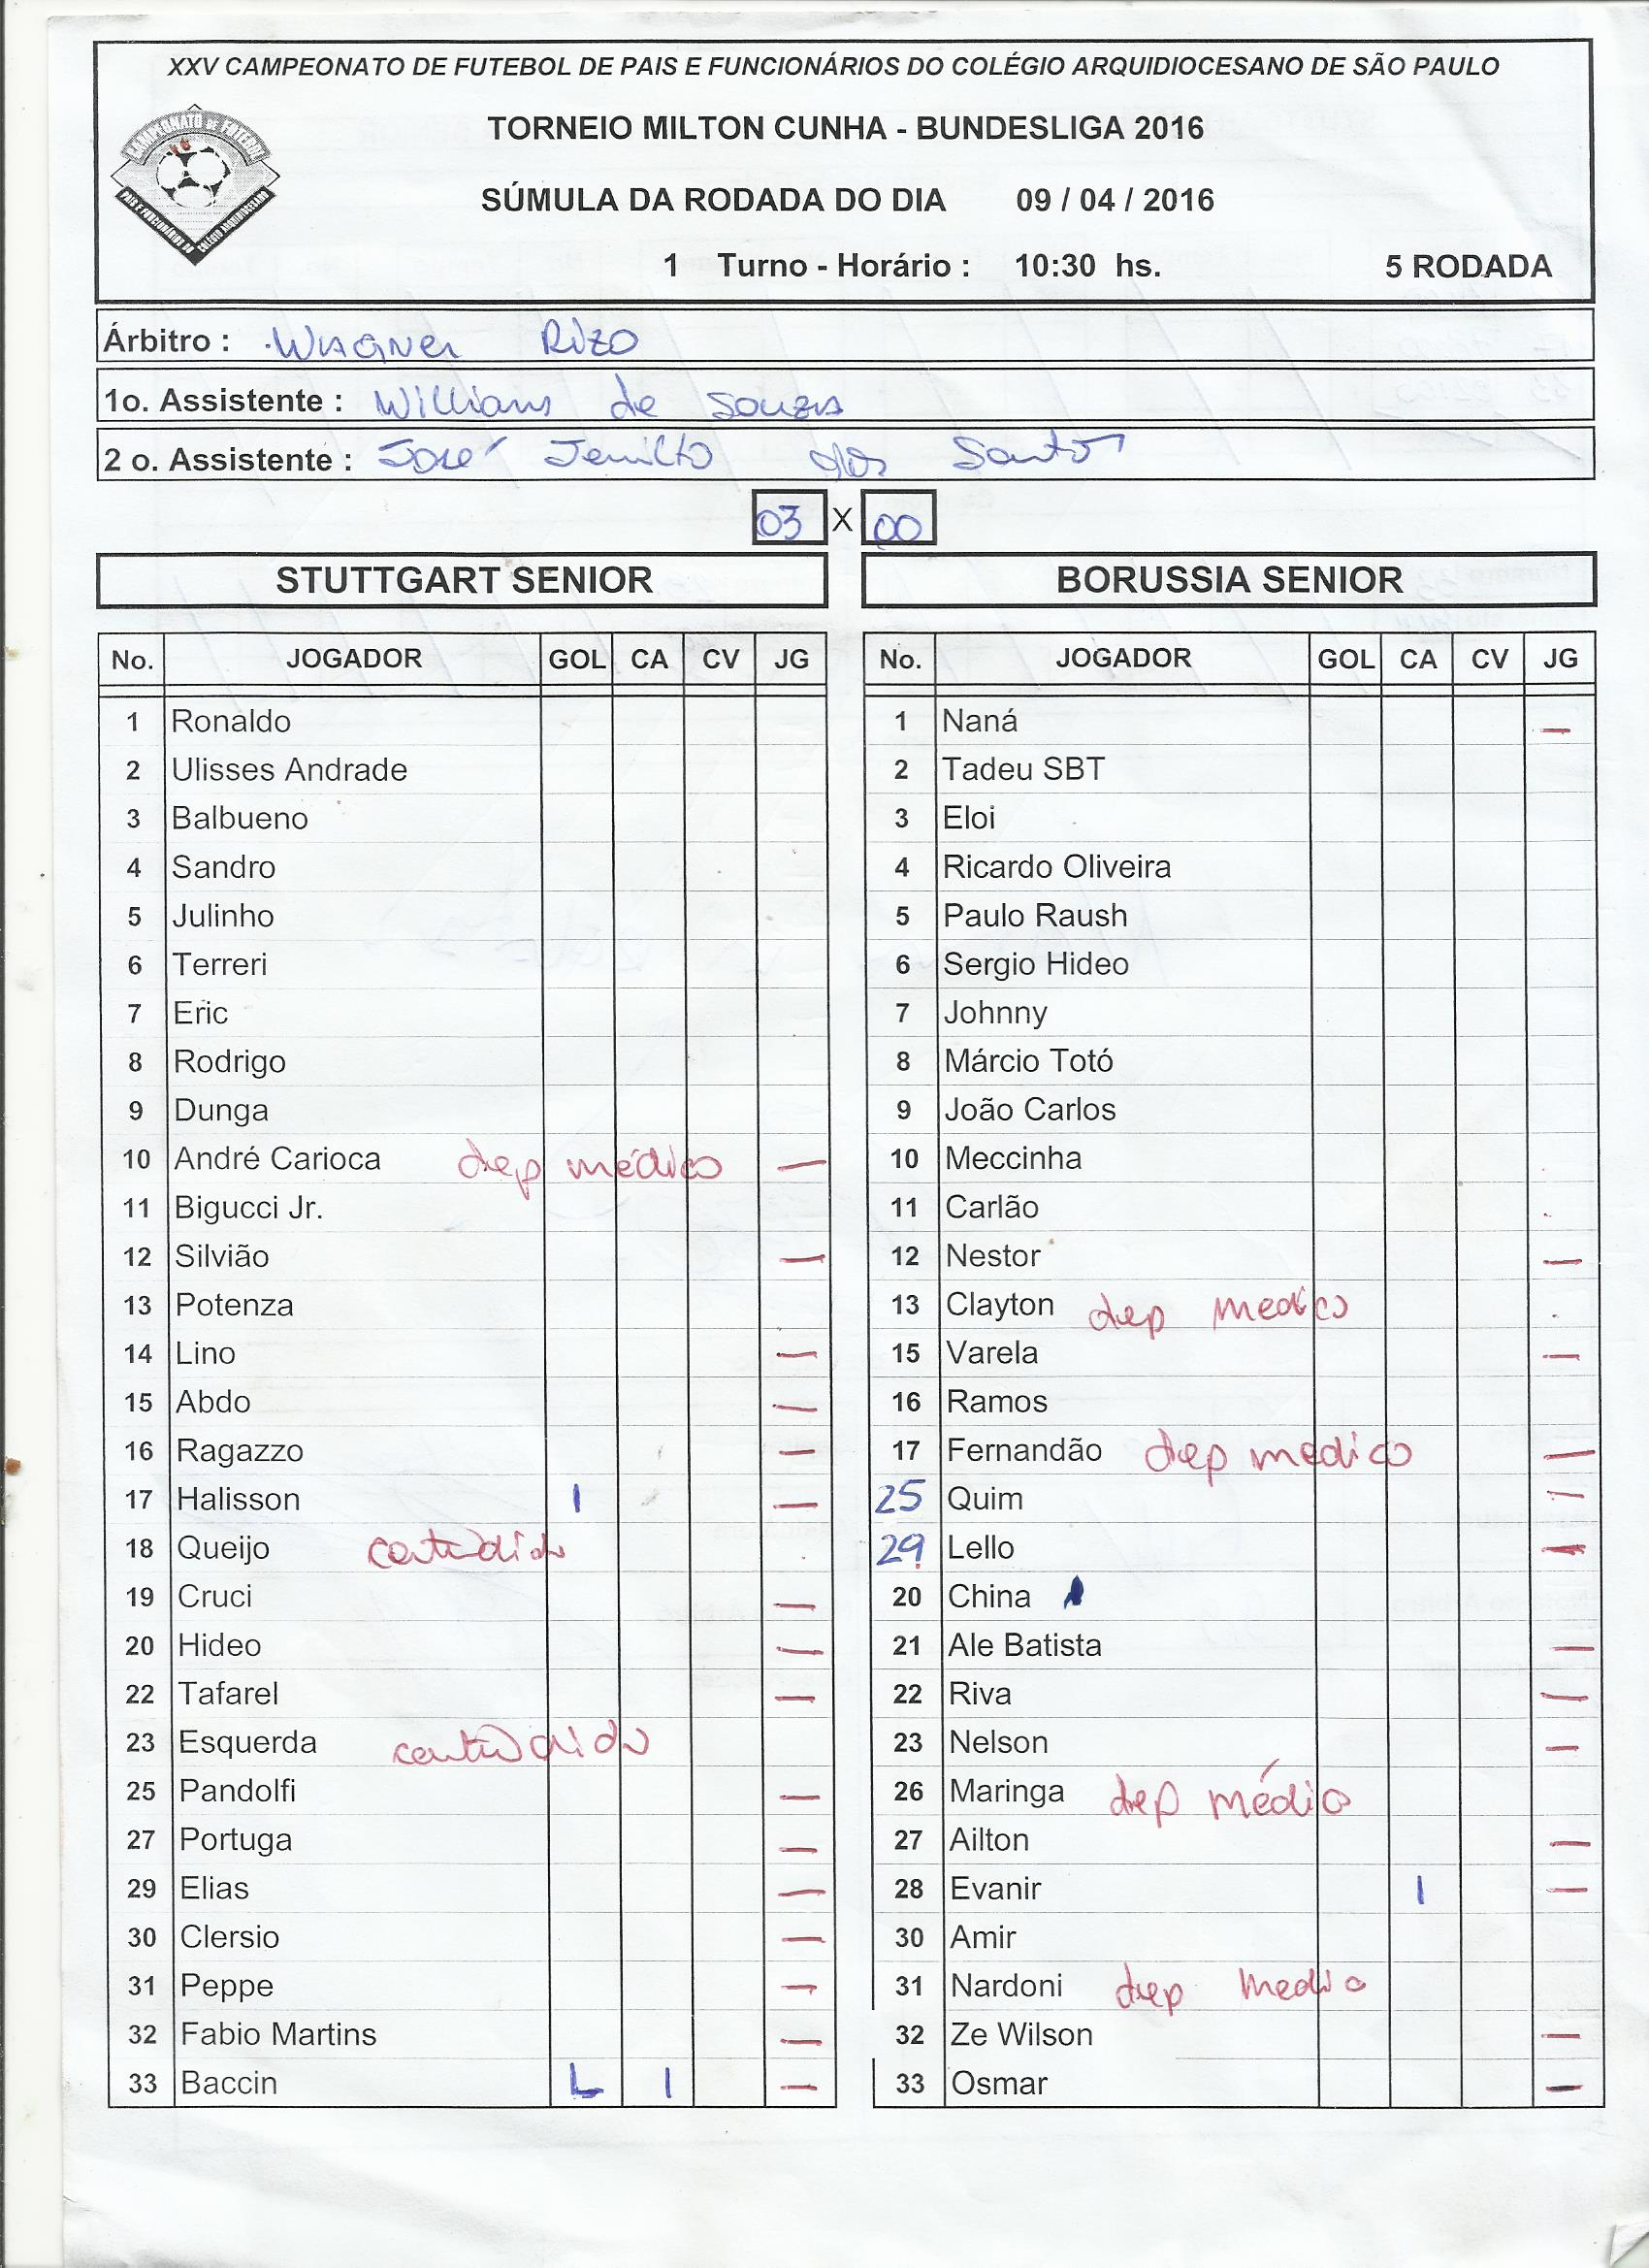 XXV CAMPEONATO DE FUTEBOL DE PAIS E FUNCIONÁRIOS DO COLÉGIO ARQUIDIOCESANO DE SÃO PAULO
CAMPEONATO DE FUTEBOL
TORNEIO MILTON CUNHA - BUNDESLIGA 2016
SÚMULA DA RODADA DO DIA 09 / 04 / 2016
1 Turno - Horário : 10:30 hs. 5 RODADA
Árbitro : Wagner Rizo
1o. Assistente : Willians de Souza
2 o. Assistente : José Jenilto dos Santos
03 X 00
STUTTGART SENIOR
No. JOGADOR GOL CA CV JG
1 Ronaldo
2 Ulisses Andrade
3 Balbueno
4 Sandro
5 Julinho
6 Terreri
7 Eric
8 Rodrigo
9 Dunga
10 André Carioca dep médico —
11 Bigucci Jr.
12 Silvião —
13 Potenza
14 Lino —
15 Abdo —
16 Ragazzo —
17 Halisson I —
18 Queijo
19 Cruci —
20 Hideo —
22 Tafarel —
23 Esquerda
25 Pandolfi —
27 Portuga —
29 Elias —
30 Clersio —
31 Peppe —
32 Fabio Martins —
33 Baccin L I —
BORUSSIA SENIOR
No. JOGADOR GOL CA CV JG
1 Naná —
2 Tadeu SBT
3 Eloi
4 Ricardo Oliveira
5 Paulo Raush
6 Sergio Hideo
7 Johnny
8 Márcio Totó
9 João Carlos
10 Meccinha
11 Carlão
12 Nestor —
13 Clayton dep medico
15 Varela —
16 Ramos
17 Fernandão dep medico —
25 Quim —
29 Lello —
20 China
21 Ale Batista —
22 Riva —
23 Nelson —
26 Maringa dep médico
27 Ailton —
28 Evanir I —
30 Amir
31 Nardoni dep medico
32 Ze Wilson —
33 Osmar —